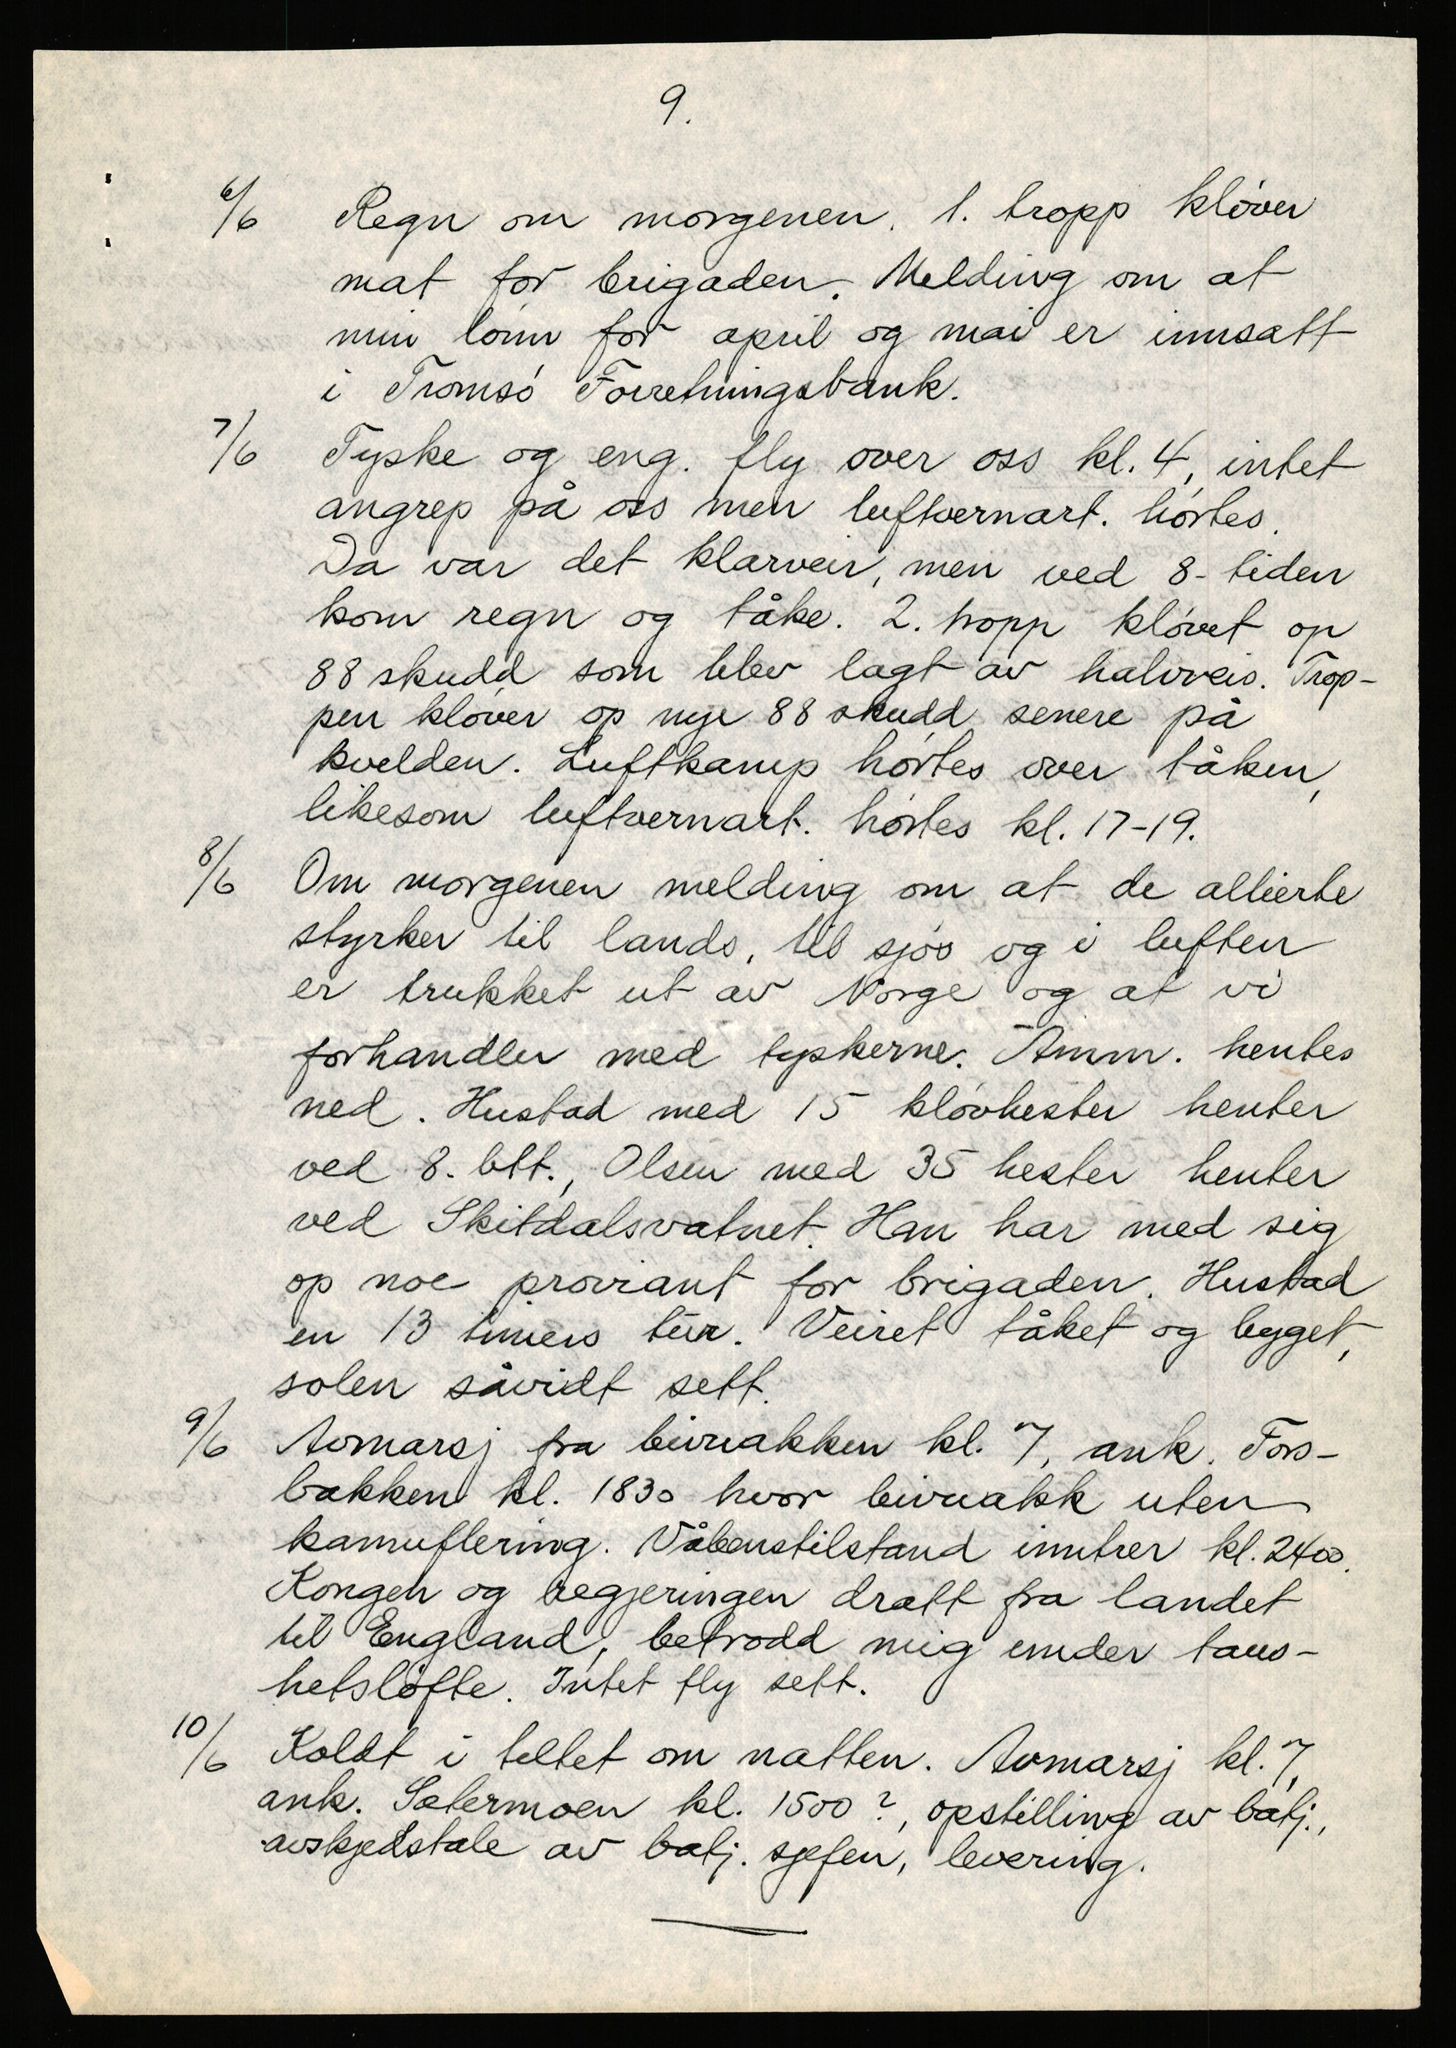 9.
6/6 Regn om morgenen. 1. tropp kløver
mat for brigaden. Melding om at
min lønn for april og mai er innsatt
i Tromsø Forretningsbank.
7/6 Tyske og eng. fly over oss kl. 4, intet
angrep på oss men luftvernart. hørtes.
Da var det klarveir, men ved 8-tiden
kom regn og tåke. 2. tropp kløvet op
88 skudd som blev lagt av halvveis. Trop-
pen kløver op nye 88 skudd senere på
kvelden. Luftkamp hørtes over tåken,
likesom luftvernart. hørtes kl. 17-19.
8/6 Om morgenen melding om at de allierte
styrker til lands, til sjøs og i luften
er trukket ut av Norge og at vi
forhandler med tyskerne. Amm. hentes
ned. Hustad med 15 kløvhester henter
ved 8. btt., Olsen med 35 hester henter
ved Skitdalsvatnet. Han har med sig
op noe proviant for brigaden. Hustad
en 13 timers tur. Veiret tåket og bygget,
solen såvidt sett.
9/6 Avmarsj fra bivuakken kl. 7, ank. Fors-
bakken kl. 1830 hvor bivuakk uten
kamuflering. Våbenstilstand inntrer kl. 2400.
Kongen og regjeringen dratt fra landet
til England, betrodd mig under taus-
hetsløfte. Intet fly sett.
10/6 Koldt i teltet om natten. Avmarsj kl. 7,
ank. Setermoen kl. 1500?, opstilling av batj.,
avskjedstale av batj. sjefen, levering.